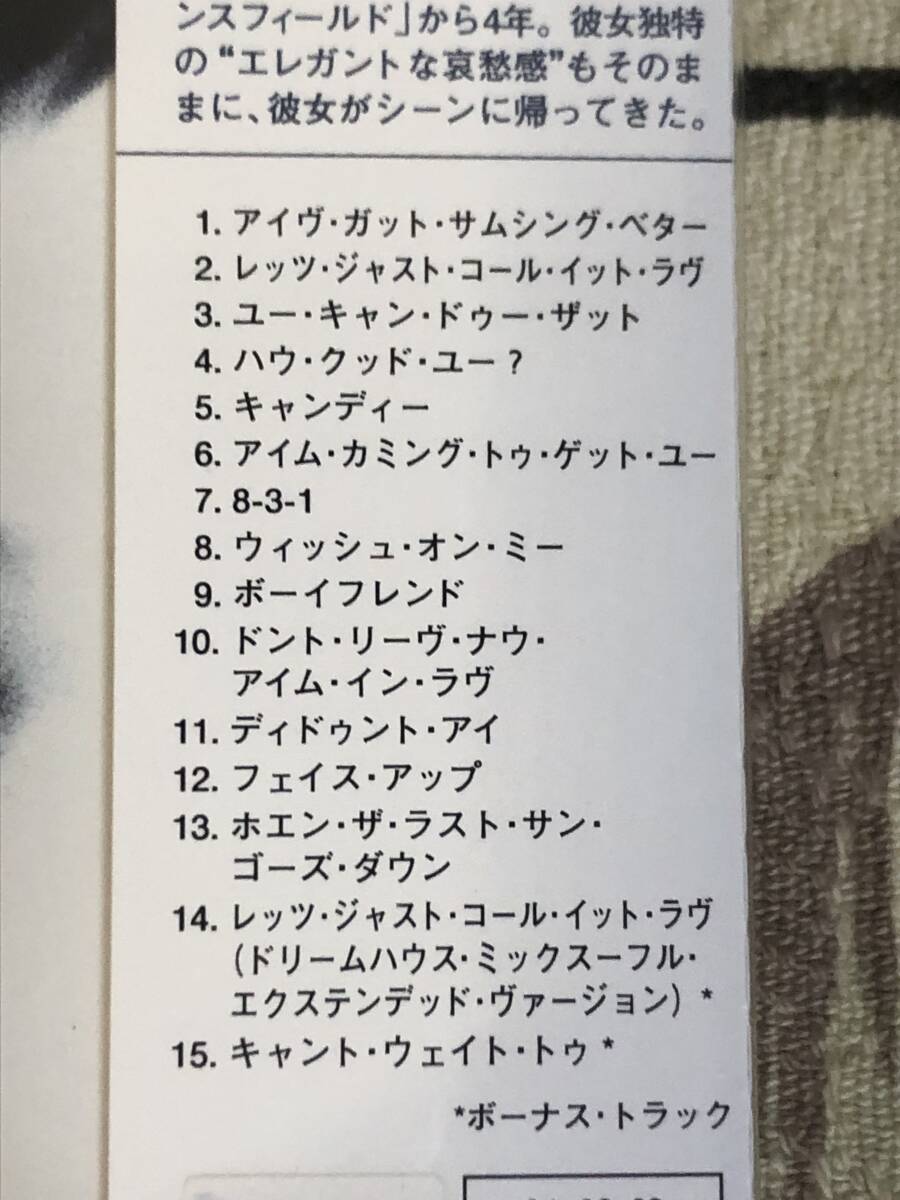 ンスフィールド」から4年。彼女独特
の“エレガントな哀愁感”もそのま
まに、彼女がシーンに帰ってきた。
1. アイヴ・ガット・サムシング・ベター
2. レッツ・ジャスト・コール・イット・ラヴ
3. ユー・キャン・ドゥー・ザット
4. ハウ・クッド・ユー?
5. キャンディー
6. アイム・カミング・トゥ・ゲット・ユー
7. 8-3-1
8. ウィッシュ・オン・ミー
9. ボーイフレンド
10. ドント・リーヴ・ナウ・
アイム・イン・ラヴ
11. ディドゥント・アイ
12. フェイス・アップ
13. ホエン・ザ・ラスト・サン・
ゴーズ・ダウン
14. レッツ・ジャスト・コール・イット・ラヴ
(ドリームハウス・ミックスーフル・
エクステンデッド・ヴァージョン) *
15. キャント・ウェイト・トゥ *
*ボーナス・トラック